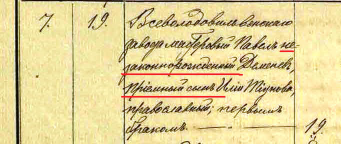 7. 19. Всеволодовильвенскаго
завода мастеровый Павелъ не-
законнорожденный Деменевъ,
пріемный сынъ Иліи Тіунова,
православный; первымъ
бракомъ. 19.